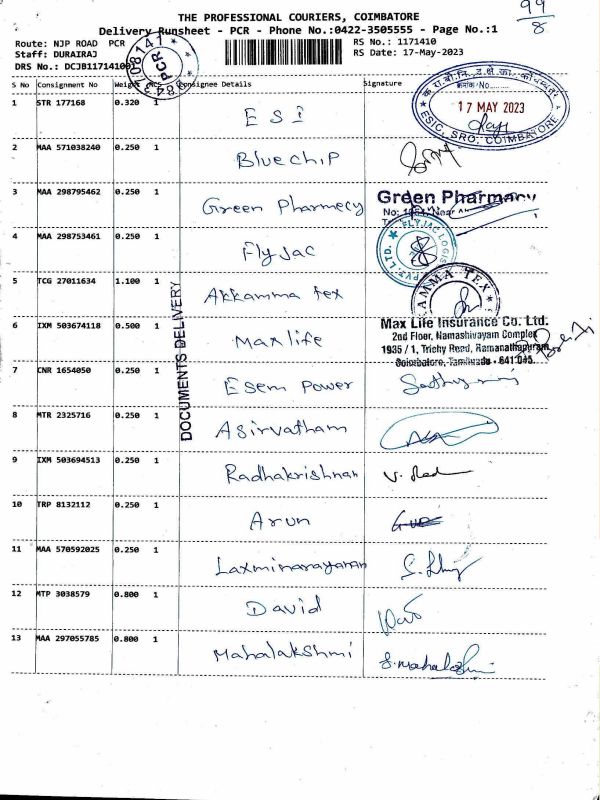 99
8
THE PROFESSIONAL COURIERS, COIMBATORE
Delivery Runsheet - PCR - Phone No.:0422-3505555 - Page No.:1
Route: NJP ROAD PCR
RS No.: 1171410
Staff: DURAIRAJ
RS Date: 17-May-2023
DRS No.: DCJB1171410
PCR
S No Consignment No Weight PCS Consignee Details Signature
17 MAY 2023
ESIC, SRO, COIMBATORE
1 STR 177168 0.320 1 ESI
2 MAA 571038240 0.250 1 Bluechip
3 MAA 298795462 0.250 1 Green Pharmecy
Green Pharmacy
4 MAA 298753461 0.250 1 Flyjac
FLYJAC LOGIS PVT. LTD.
5 TCG 27011634 1.100 1 Akkamma tex
AMMA TEX
DOCUMENTS DELIVERY
6 IXM 503674118 0.500 1 Maxlife
Max Life Insurance Co. Ltd.
2nd Floor, Namashivayam Complex
1935 / 1, Trichy Road, Ramanathapuram
Coimbatore, Tamilnadu - 641 045.
7 CNR 1654050 0.250 1 Esem Power
8 MTR 2325716 0.250 1 Asirvatham
9 IXM 503694513 0.250 1 Radhakrishnan
10 TRP 8132112 0.250 1 Arun
11 MAA 570592025 0.250 1 Laxminarayanan
12 MTP 3038579 0.800 1 David
13 MAA 297055785 0.800 1 Mahalakshmi S. Mahalakshmi